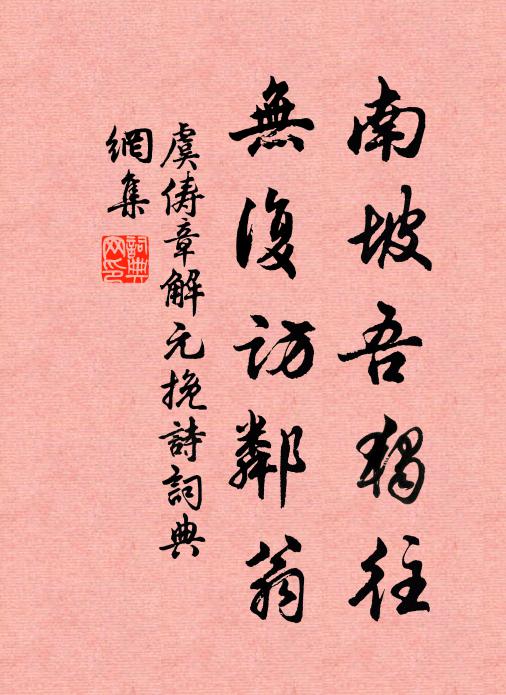 南坡吾獨往
無復訪鄰翁
虞儔章解元挽詩詞典
網集
詞典网印